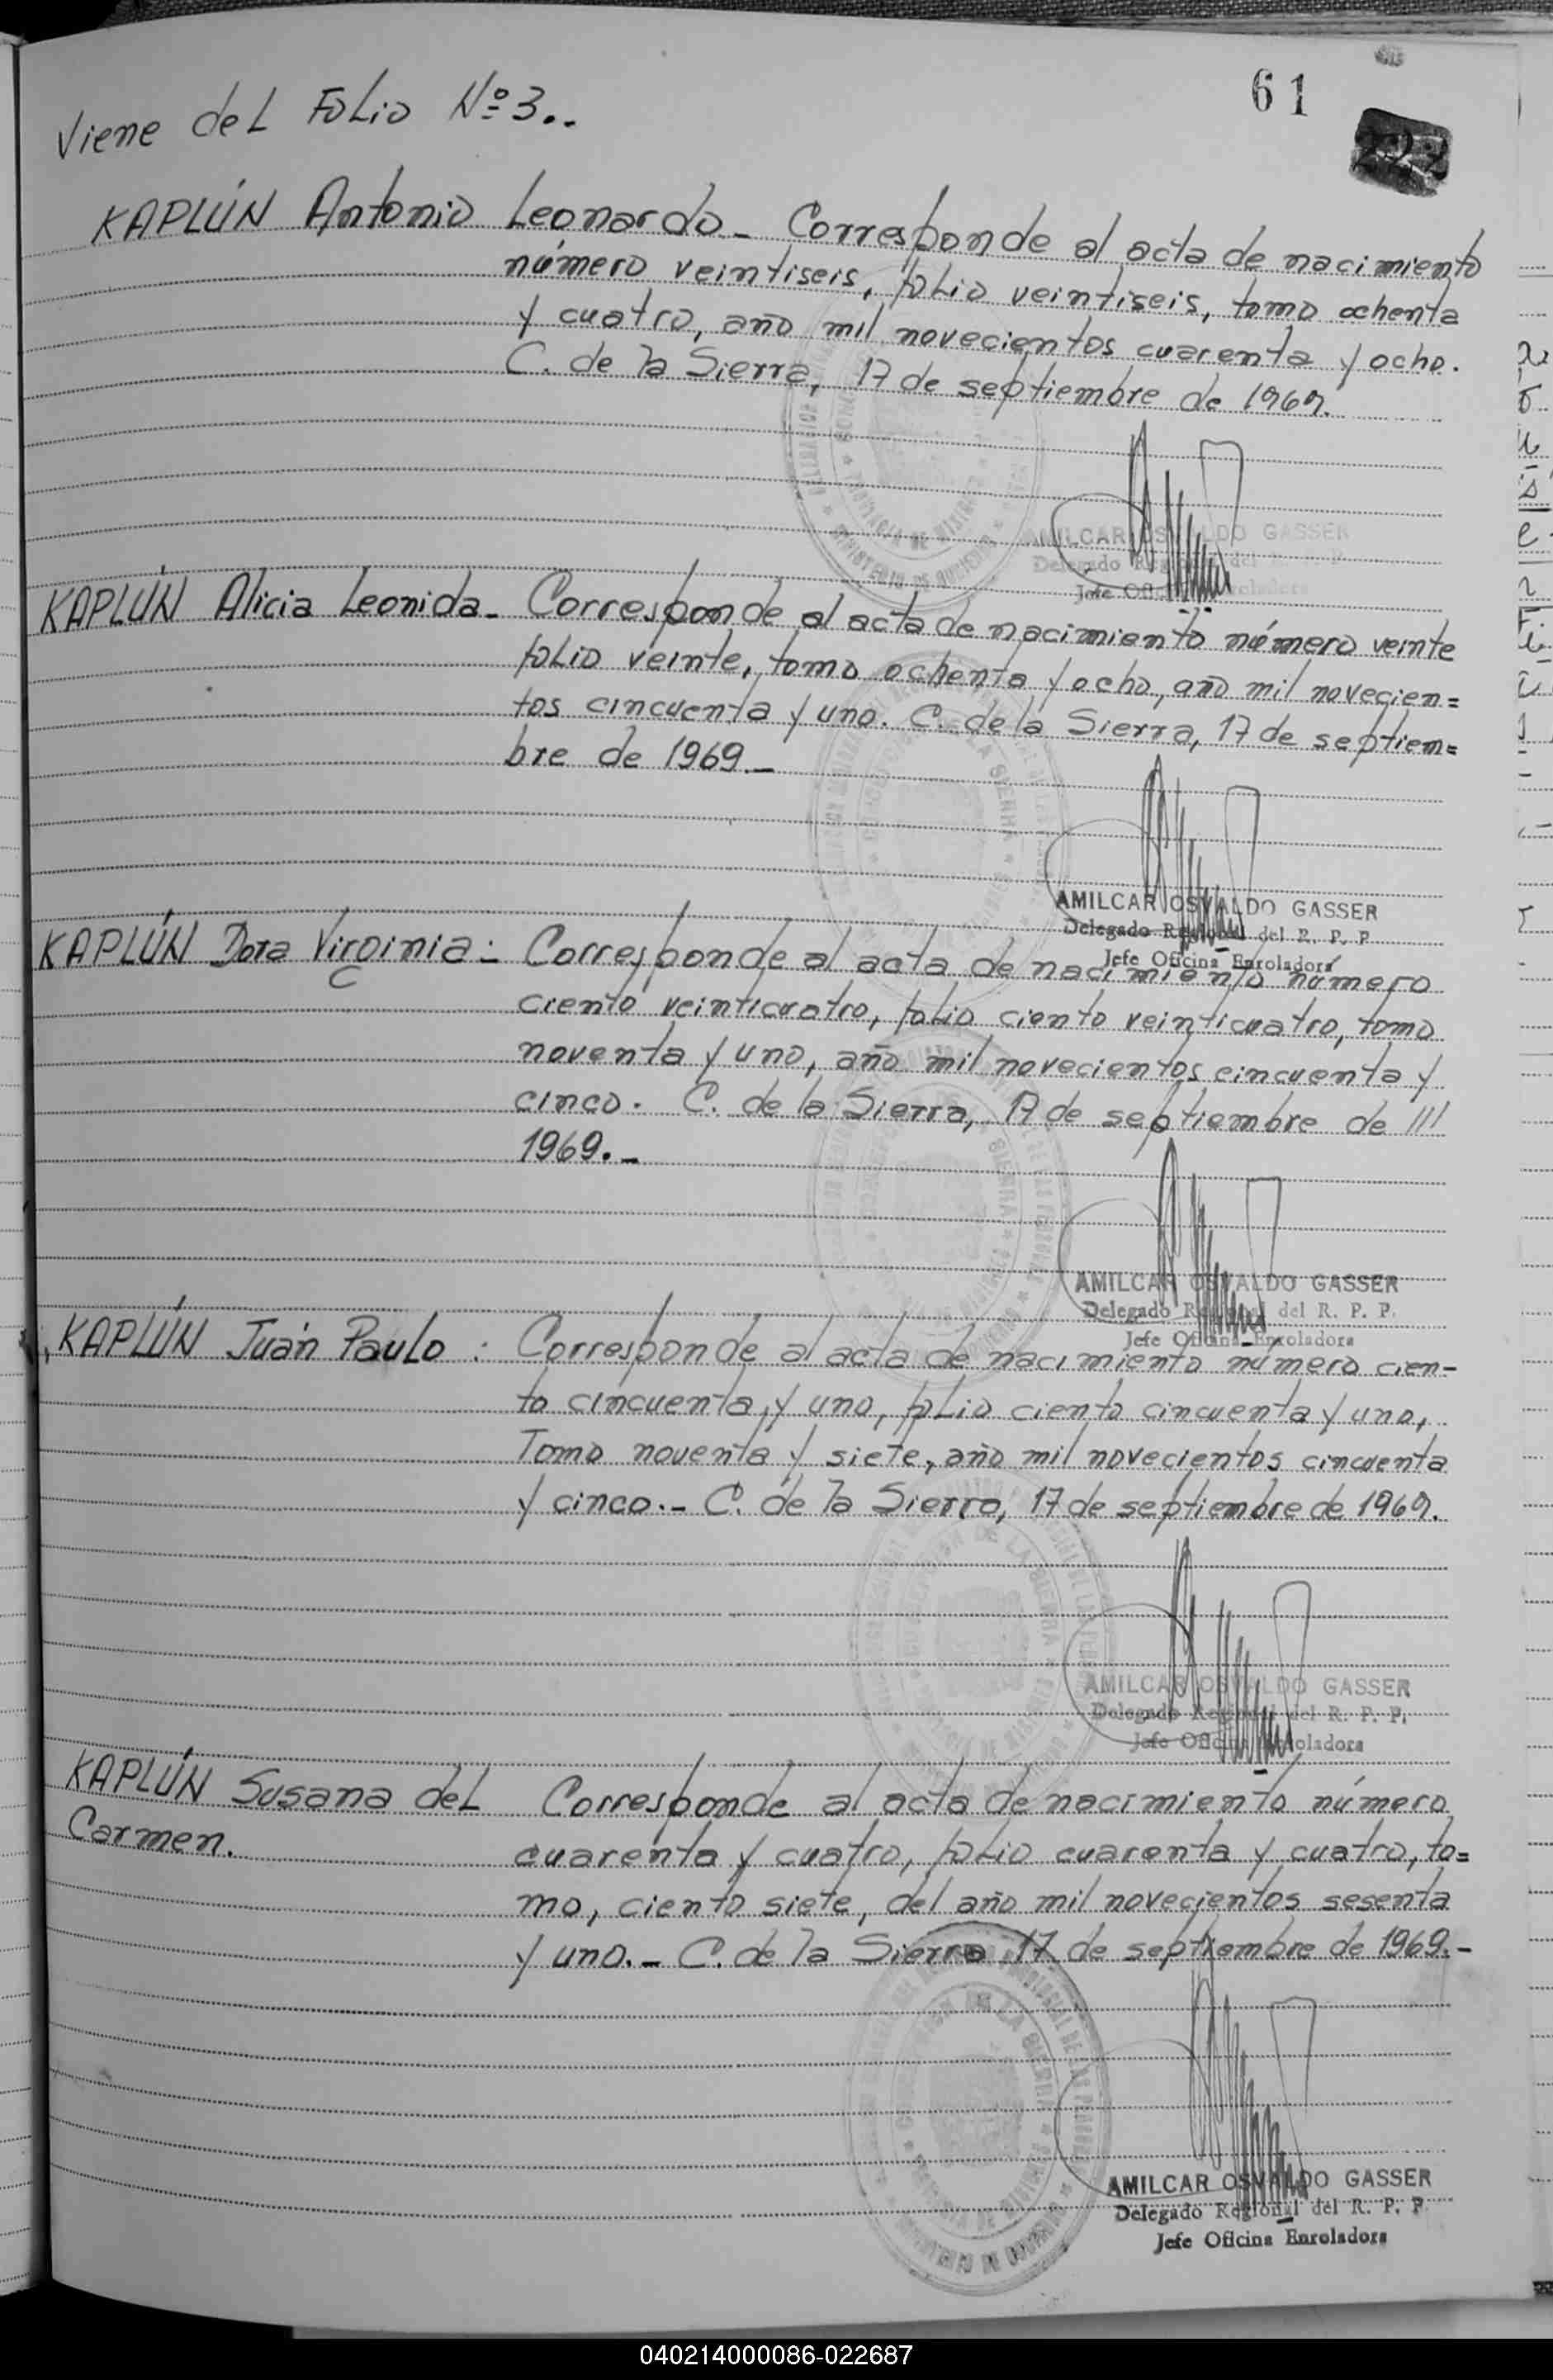 61
Viene del Folio Nº 3..
KAPLÚN Antonio Leonardo_ Corresponde al acta de nacimiento
número veintiseis, folio veintiseis, tomo ochenta
y cuatro, año mil novecientos cuarenta y ocho.
C. de la Sierra, 17 de septiembre de 1969.
AMILCAR OSVALDO GASSER
Delegado Regional del R. P. P.
Jefe Oficina Enroladora
KAPLÚN Alicia Leonida_ Corresponde al acta de nacimiento número veinte
folio veinte, tomo ochenta y ocho, año mil novecien=
tos cincuenta y uno. C. de la Sierra, 17 de septiem=
bre de 1969._
AMILCAR OSVALDO GASSER
Delegado Regional del R. P. P.
Jefe Oficina Enroladora
KAPLÚN Dora Virginia: Corresponde al acta de nacimiento número
ciento veinticuatro, folio ciento veinticuatro, tomo
noventa y uno, año mil novecientos cincuenta y
cinco. C. de la Sierra, 17 de septiembre de ///
1969._
AMILCAR OSVALDO GASSER
Delegado Regional del R. P. P.
Jefe Oficina Enroladora
KAPLÚN Juan Paulo : Corresponde al acta de nacimiento número cien-
to cincuenta y uno, folio ciento cincuenta y uno,
Tomo noventa y siete, año mil novecientos cincuenta
y cinco._ C. de la Sierra, 17 de septiembre de 1969.
AMILCAR OSVALDO GASSER
Delegado Regional del R. P. P.
Jefe Oficina Enroladora
KAPLÚN Susana del Corresponde al acta de nacimiento número
Carmen. cuarenta y cuatro, folio cuarenta y cuatro, to=
mo, ciento siete, del año mil novecientos sesenta
y uno._ C. de la Sierra 17 de septiembre de 1969._
AMILCAR OSVALDO GASSER
Delegado Regional del R. P. P.
Jefe Oficina Enroladora
040214000086-022687